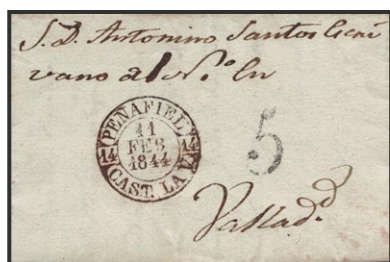 S. D. Antonino Santos Escri
vano del N.º En
PEÑAFIEL
14 14
11
FEB
1844
CAST. LA V.
5
Vallad.d